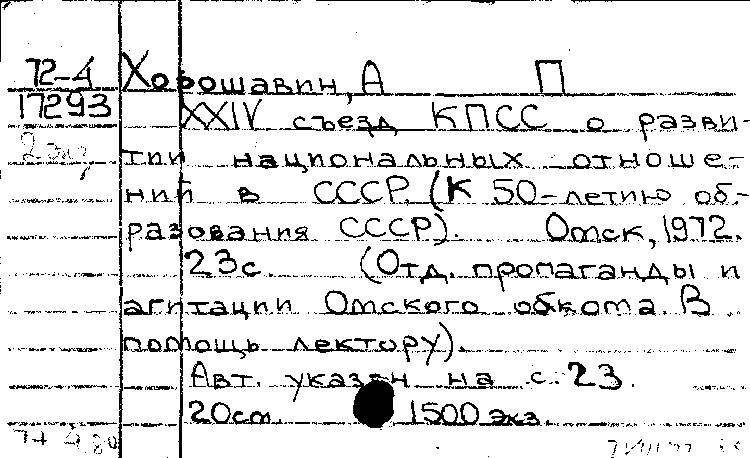 72-4 Хорошавин, А П
17293 XXIV съезд КПСС о разви-
2 экз тии национальных отноше-
ний в СССР. (К 50-летию об-
разования СССР). Омск, 1972.
23с. (Отд. пропаганды и
агитации Омского обкома. В
помощь лектору).
Авт. указан на с. 23.
20см. 1500 экз.